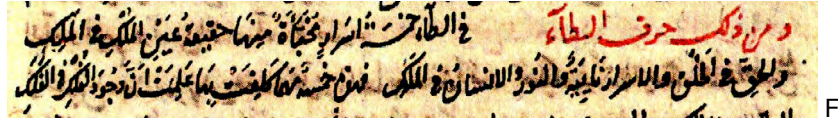 ومن ذلك حرف الطاء في الطاء خمسة اسرار مخبأة منها حقيقة عين الملك في الملك
والحق في الخلق والاسرار نايبة والنور والانسان في الملك فهذه خمسة مهما كلفت بها علمت ان وجود الفلك في الفلك
F